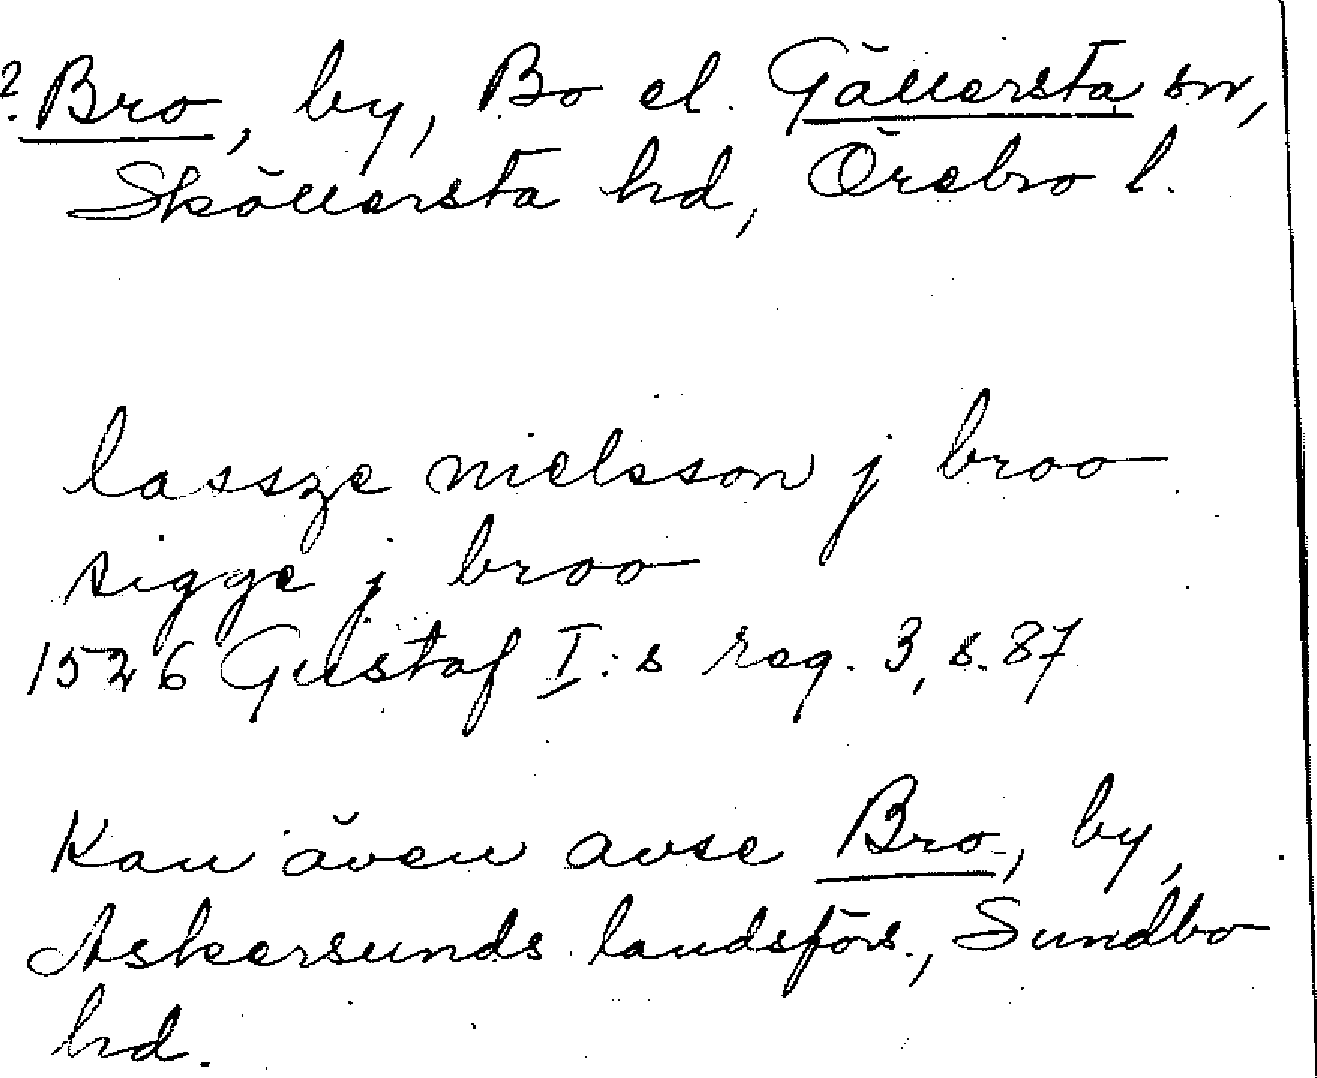 ? Bro, by, Bo el. Gällersta sn,
Sköllersta hd, Örebro l.
lassze nielsson j broo
sigge j broo
1526 Gustaf I:s reg. 3, s. 87
Kan även avse Bro, by,
Askersunds landsförs., Sundbo
hd.